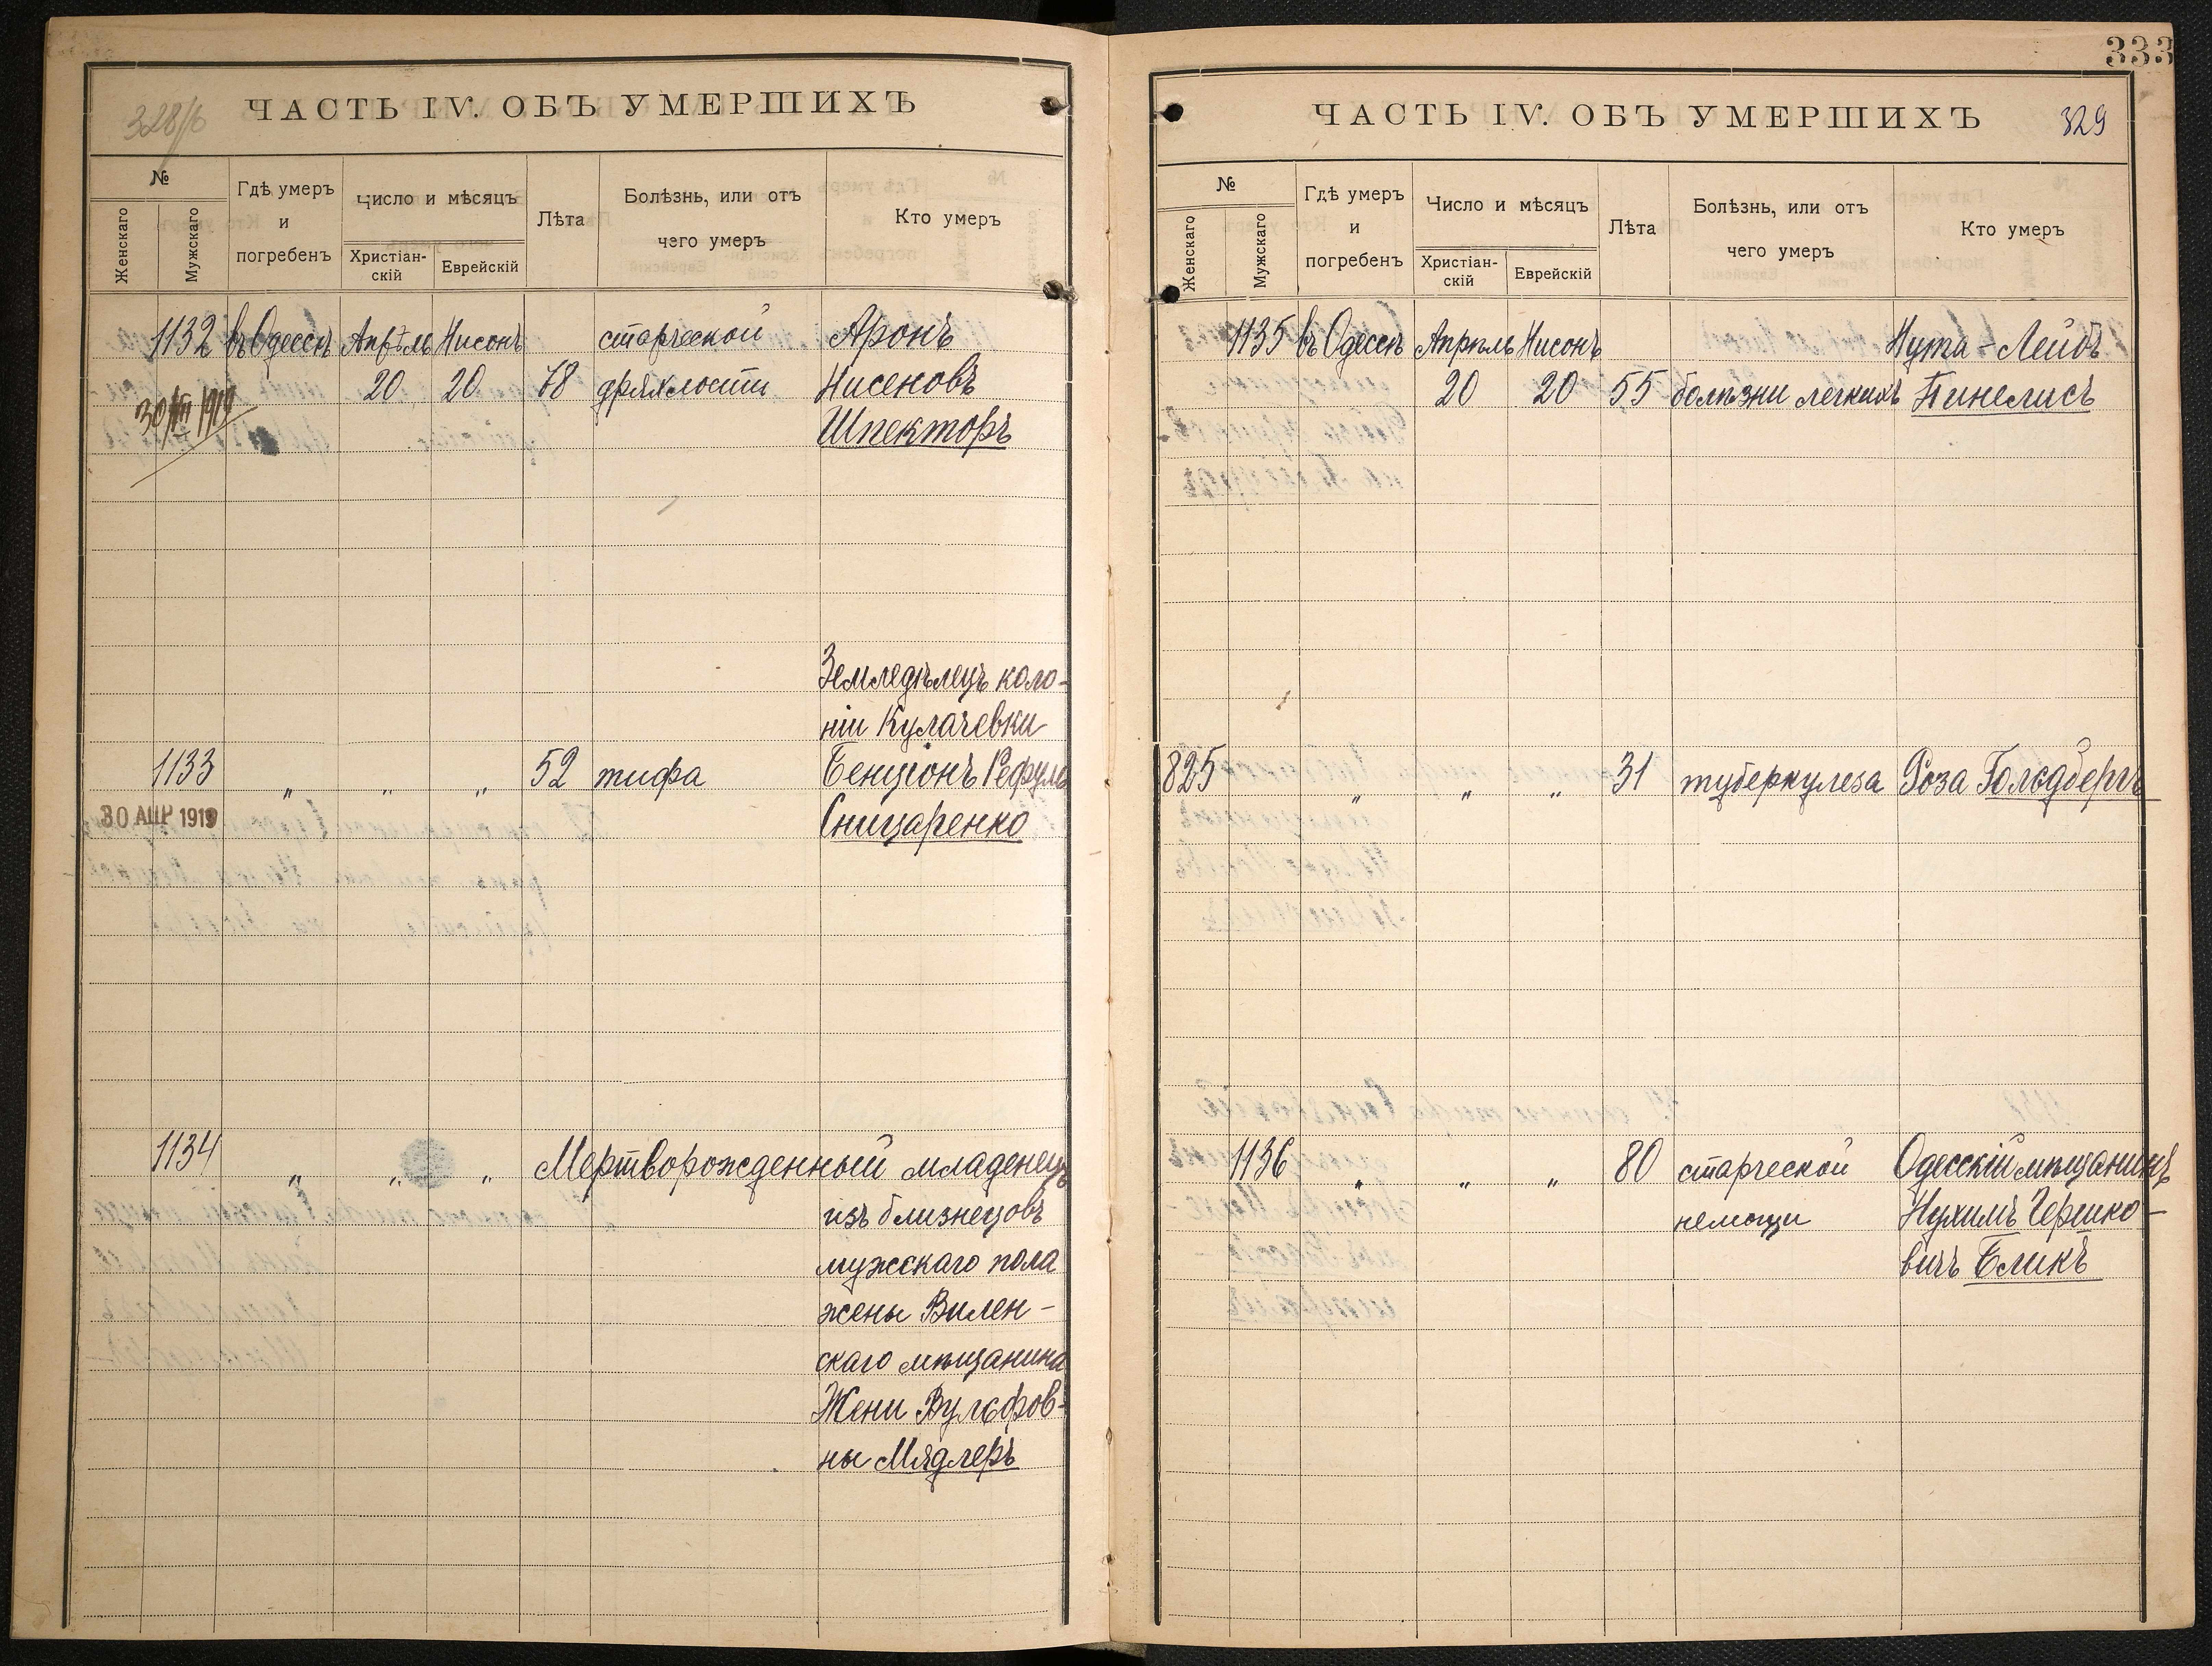 328/б
ЧАСТЬ IV. ОБЪ УМЕРШИХЪ
№
Женскаго
Мужскаго
Гдѣ умеръ
и
погребенъ
Число и мѣсяцъ
Христіан-
скій
Еврейскій
Лѣта
Болѣзнь, или отъ
чего умеръ
Кто умеръ
1132 въ Одессѣ Апрѣль Нисонъ старческой Аронъ
20 20 78 дряхлости Нисеновъ
Шпекторъ
Земледѣлецъ коло-
ніи Кулачевки
1133 „ „ „ 52 тифа Бенціонъ Рефуль
30 АПР 1919
Сницаренко
1134 „ „ „ Мертворожденный младенецъ
изъ близнецовъ
мужскаго пола
жены Вилен-
скаго мѣщанина
Жени Вульфов-
ны Мядлеръ
333
ЧАСТЬ IV. ОБЪ УМЕРШИХЪ
329
№
Женскаго
Мужскаго
Гдѣ умеръ
и
погребенъ
Число и мѣсяцъ
Христіан-
скій
Еврейскій
Лѣта
Болѣзнь, или отъ
чего умеръ
Кто умеръ
1135 въ Одессѣ Апрѣль Нисонъ Нута-Лейбъ
20 20 55 болѣзни легкихъ Пинелисъ
825 „ „ „ 31 туберкулеза Роза Гольдбергъ
1136 „ „ „ 80 старческой Одесскій мѣщанинъ
немощи Нухимъ Гершко-
вичъ Бликъ